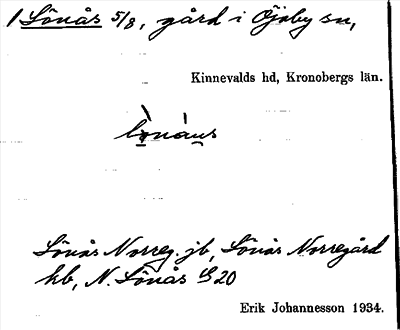 1 Lönås 5/8, gård i Öjaby sn,
Kinnevalds hd, Kronobergs län.
Lönås Norreg. jb, Lönås Norregård
hb, N. Lönås G 20
Erik Johannesson 1934.